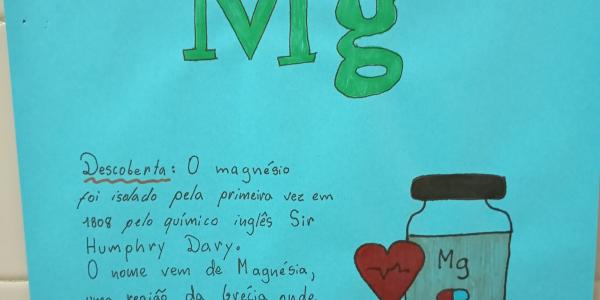 Mg
Descoberta: O magnésio
foi isolado pela primeira vez em
1808 pelo químico inglês Sir
Humphry Davy.
O nome vem de Magnésia,
uma região da Grécia onde
Mg